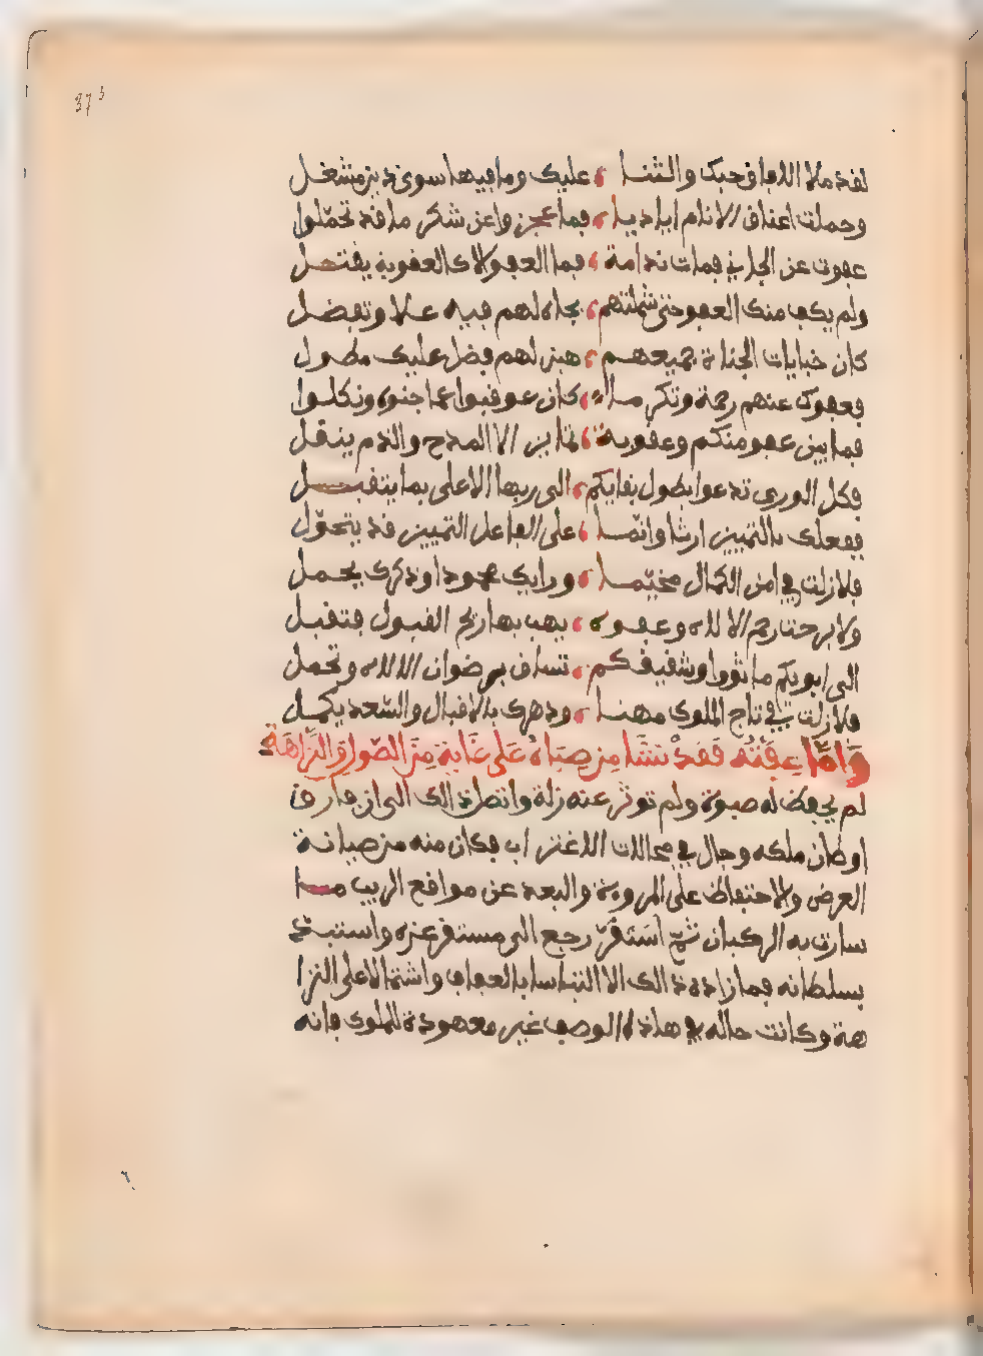 37
لقد ملا الافاق حبك والثنا ، عليك وما فيها سوى ذين مشغل
وحملت اعناق الانام اياديا ، فما عجزوا عن شكر ما قد تحمّلوا
عفوت عن الجاني فمات ندامة ، فما العفو الا كالعقوبة يقتل
ولم يكف منك العفو حتى شملتهم ، بجاه لهم فيه علا وتفضل
كان خبايات الجناة جميعهم ، هنز لهم فضل عليك مطول
فعفوك عنهم رحمة وتكرما ، كان عوقبوا عما جنوه ونكلوا
فما بين عفو منكم وعقوبة ، تمايز الا المدح والذم ينقل
فكل الورى تدعوا بطول بقايكم ، الى ربها الاعلى بما يتقبل
ففعلك بالتمييز ارثا وانما ، على الفاعل التمييز قد يتحوّل
فلا زلت في امن الكمال مخيّما ، ورايك محمود اوذكرك يحمل
ولا برحت رحم الالاه وعفوه ، يهب بها ريح القبول فتقبل
الى ابويكم ما ثووا وشقيقكم ، تساق برضوان الالاه وتحمل
فلا زلت في تاج الملوك مهنا ، ودهرك بالاقبال والسّعد يكمل
وَامَّا عِفَّتُه فَقَدْ نشَا مِن صِبَاهُ عَلى غَايَة مِنَ الصّون وَالنَّزَاهَة
لم يحفظ له صبوة ولم توثر عنه زلة واتصل ذالك الى ان فارق
اوطان ملكه وجال في مجالات الاغتراب فكان منه من صيانة
العرض والاحتفاظ على المروءة والبعد عن مواقع الريب ما
سارت به الركبان ثمّ اسْتَقرّ رجع الى مستقر عزه واستبد
بسلطانه فما زاده ذالك الا التباسا بالعفاف واشتمالا على النزا
هة وكانت حاله في هاذا الوصف غير معهودة للملوك فانه